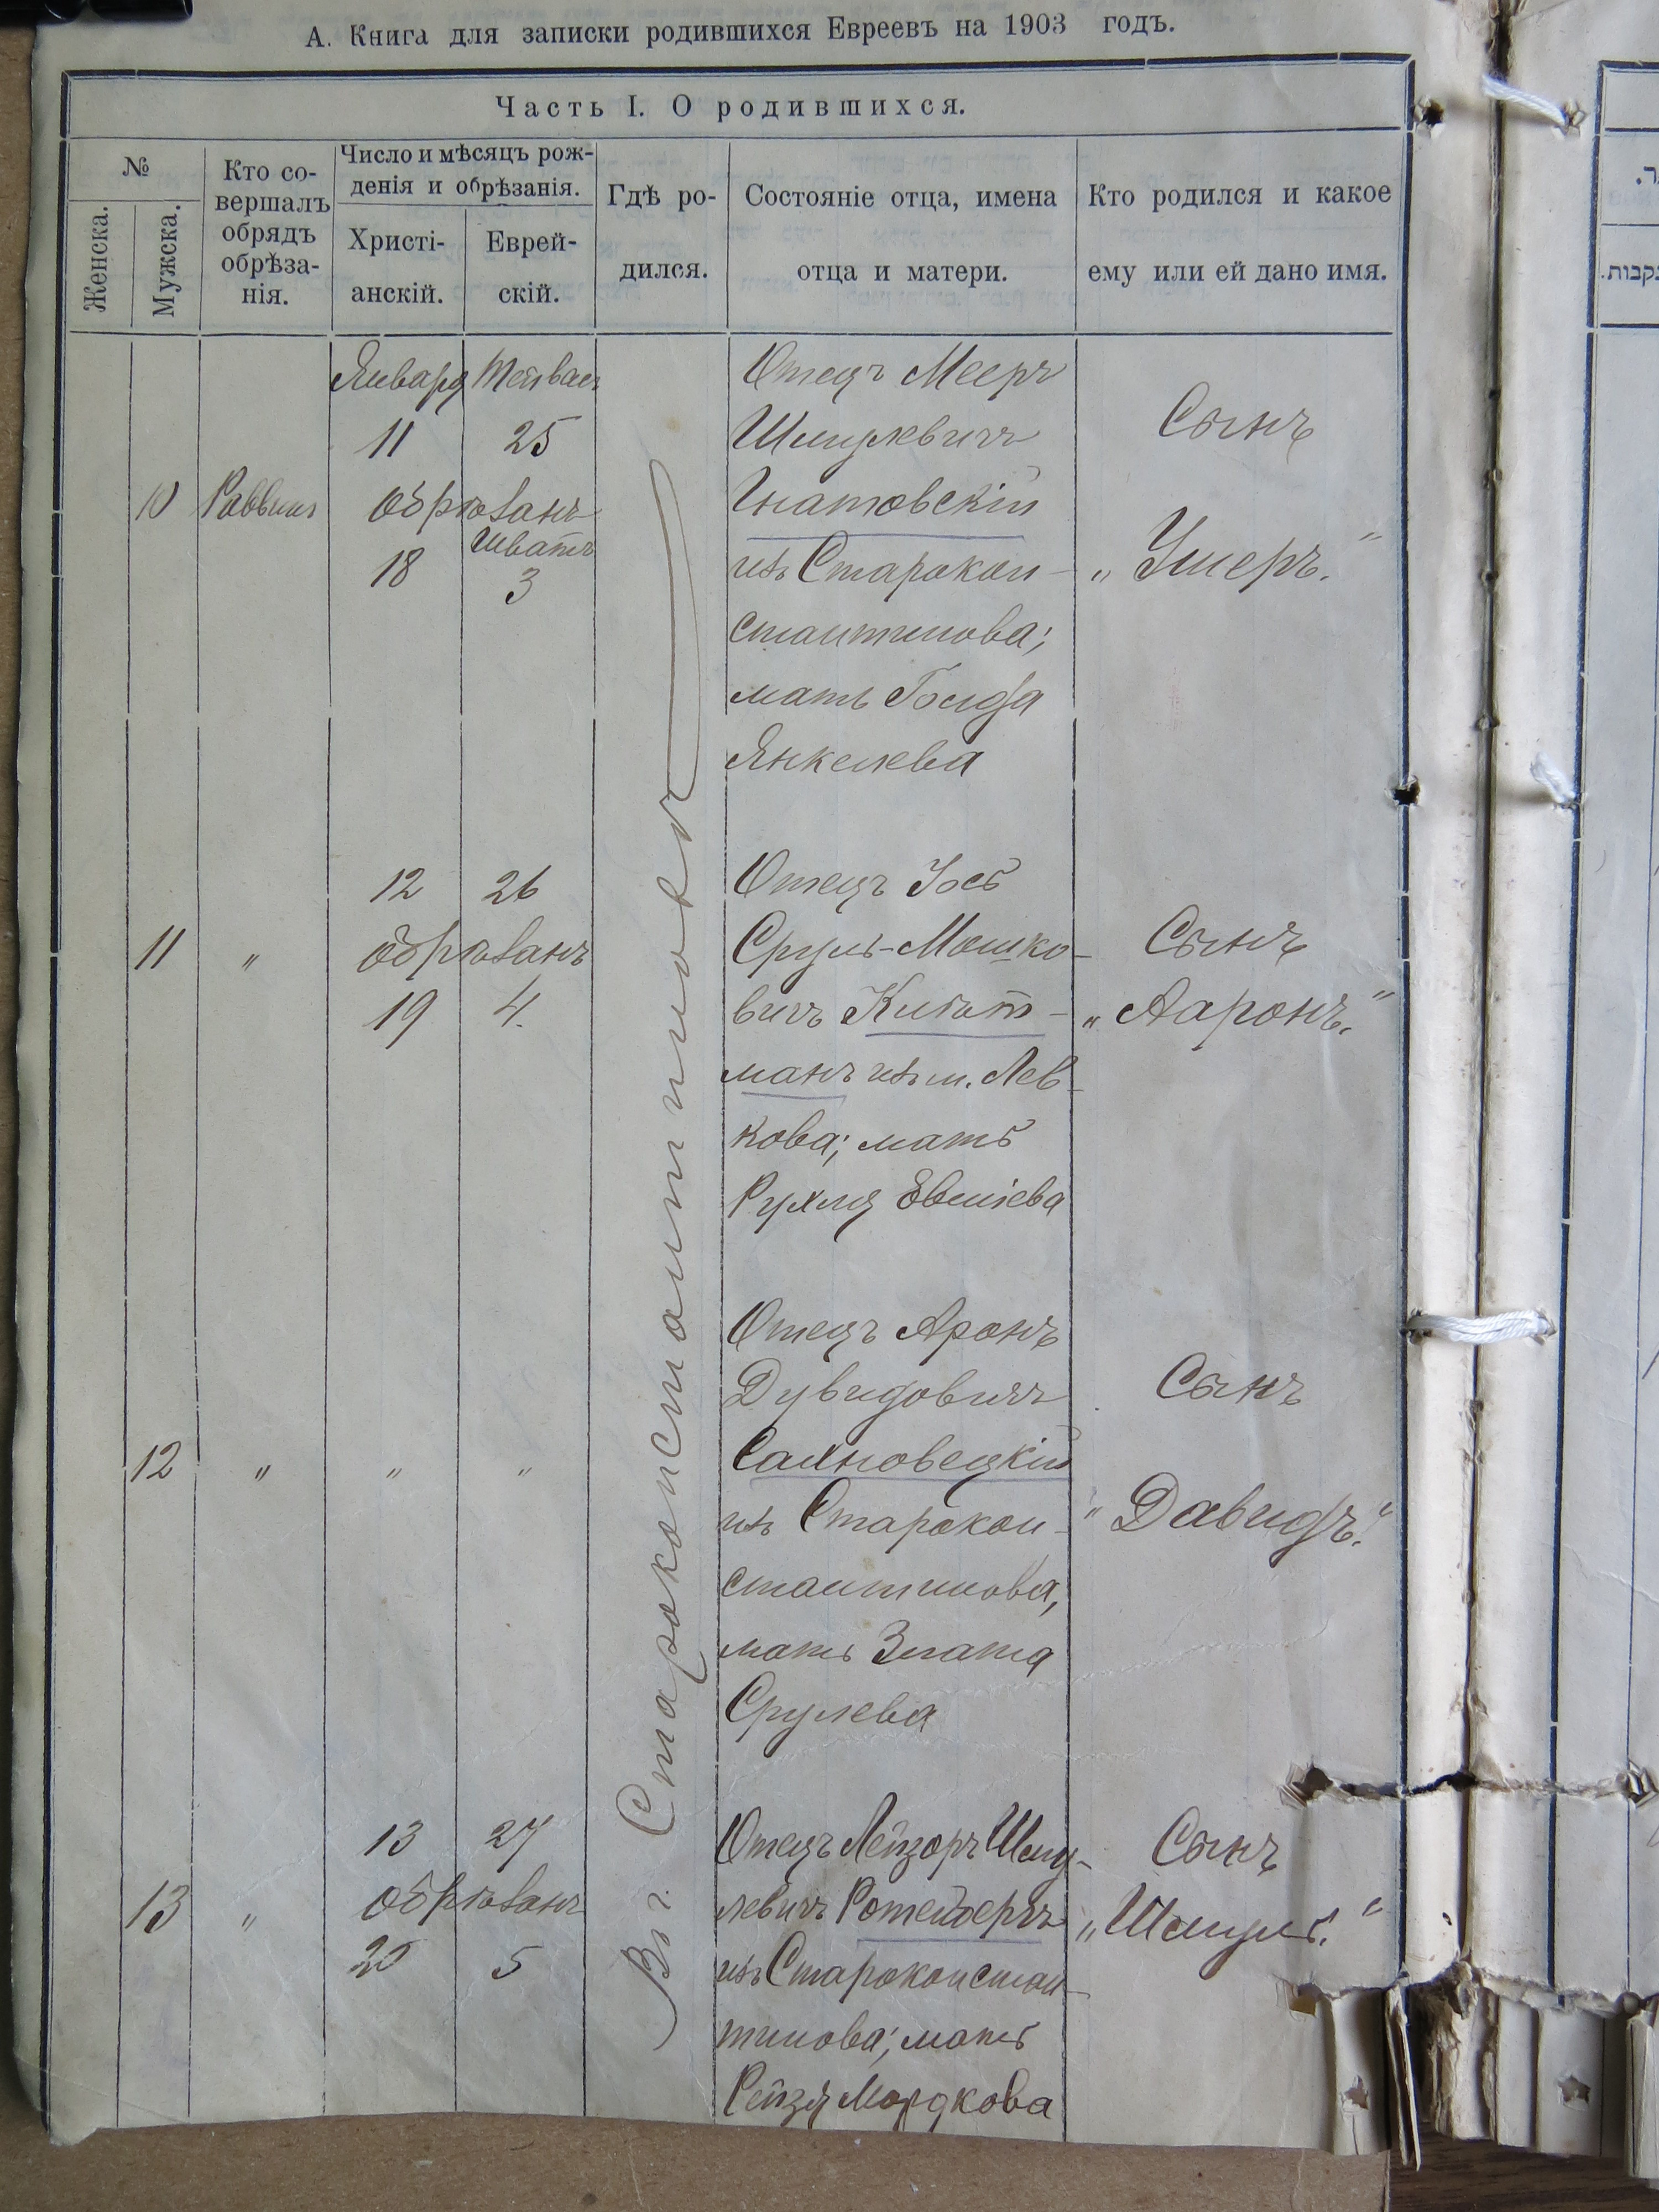 А. Книга для записки родившихся Евреевъ на 1903 годъ.
Часть I. О родившихся.
№
Женска.
Мужска.
Кто со-
вершалъ
обрядъ
обрѣза-
нія.
Число и мѣсяцъ рож-
денія и обрѣзанія.
Христі-
анскій.
Еврей-
скій.
Гдѣ ро-
дился.
Состояніе отца, имена
отца и матери.
Кто родился и какое
ему или ей дано имя.
Въ г. Староконстантиновѣ
10 Раввинъ
Января Тейвасъ
11 25
обрѣзанъ
Шватъ
18 3
Отецъ Мееръ
Шмулевичъ
Гнатовскій
изъ Старокон-
стантинова;
мать Голда
Янкелева
Сынъ
„Ушеръ."
11 „
12 26
обрѣзанъ
19 4.
Отецъ Іось
Сруль-Мошко-
вичъ
манъ изъ м. Лев-
кова; мать
Рухля Евшіева
Сынъ
„Ааронъ."
12 „ „ „
Отецъ Аронъ
Дувидовичъ
Сахновецкій
изъ Старокон-
стантинова,
мать Злата
Срулева
Сынъ
„Давидъ."
13 „
13 27
обрѣзанъ
20 5
Отецъ Лейзоръ Шму-
левичъ Ротенбергъ
изъ Староконстан-
тинова; мать
Рейзя Мордкова
Сынъ
„Шмуль."